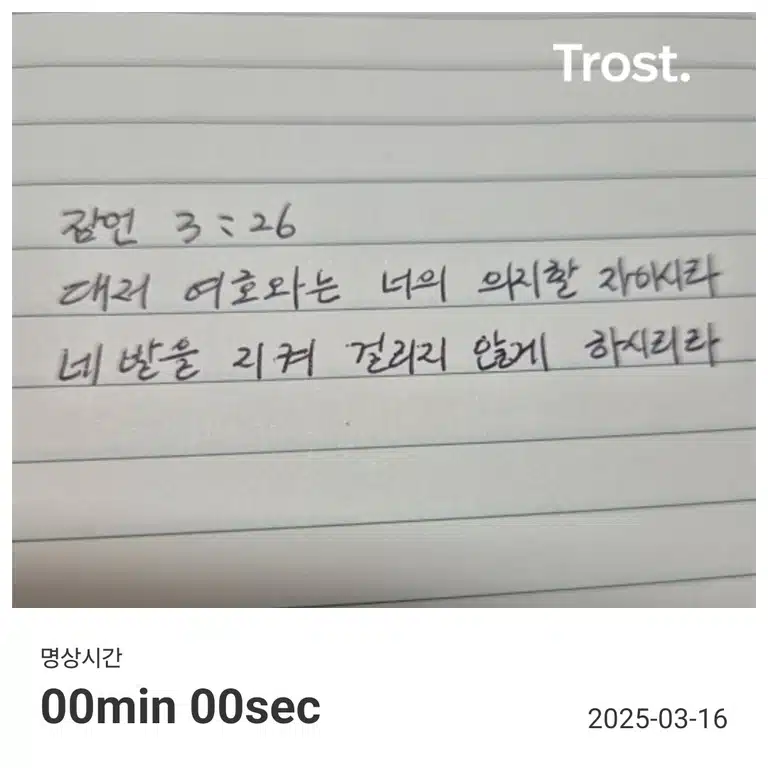 Trost.
잠언 3:26
대저 여호와는 너의 의지할 자이시라
네 발을 지켜 걸리지 않게 하시리라
명상시간
00min 00sec
2025-03-16